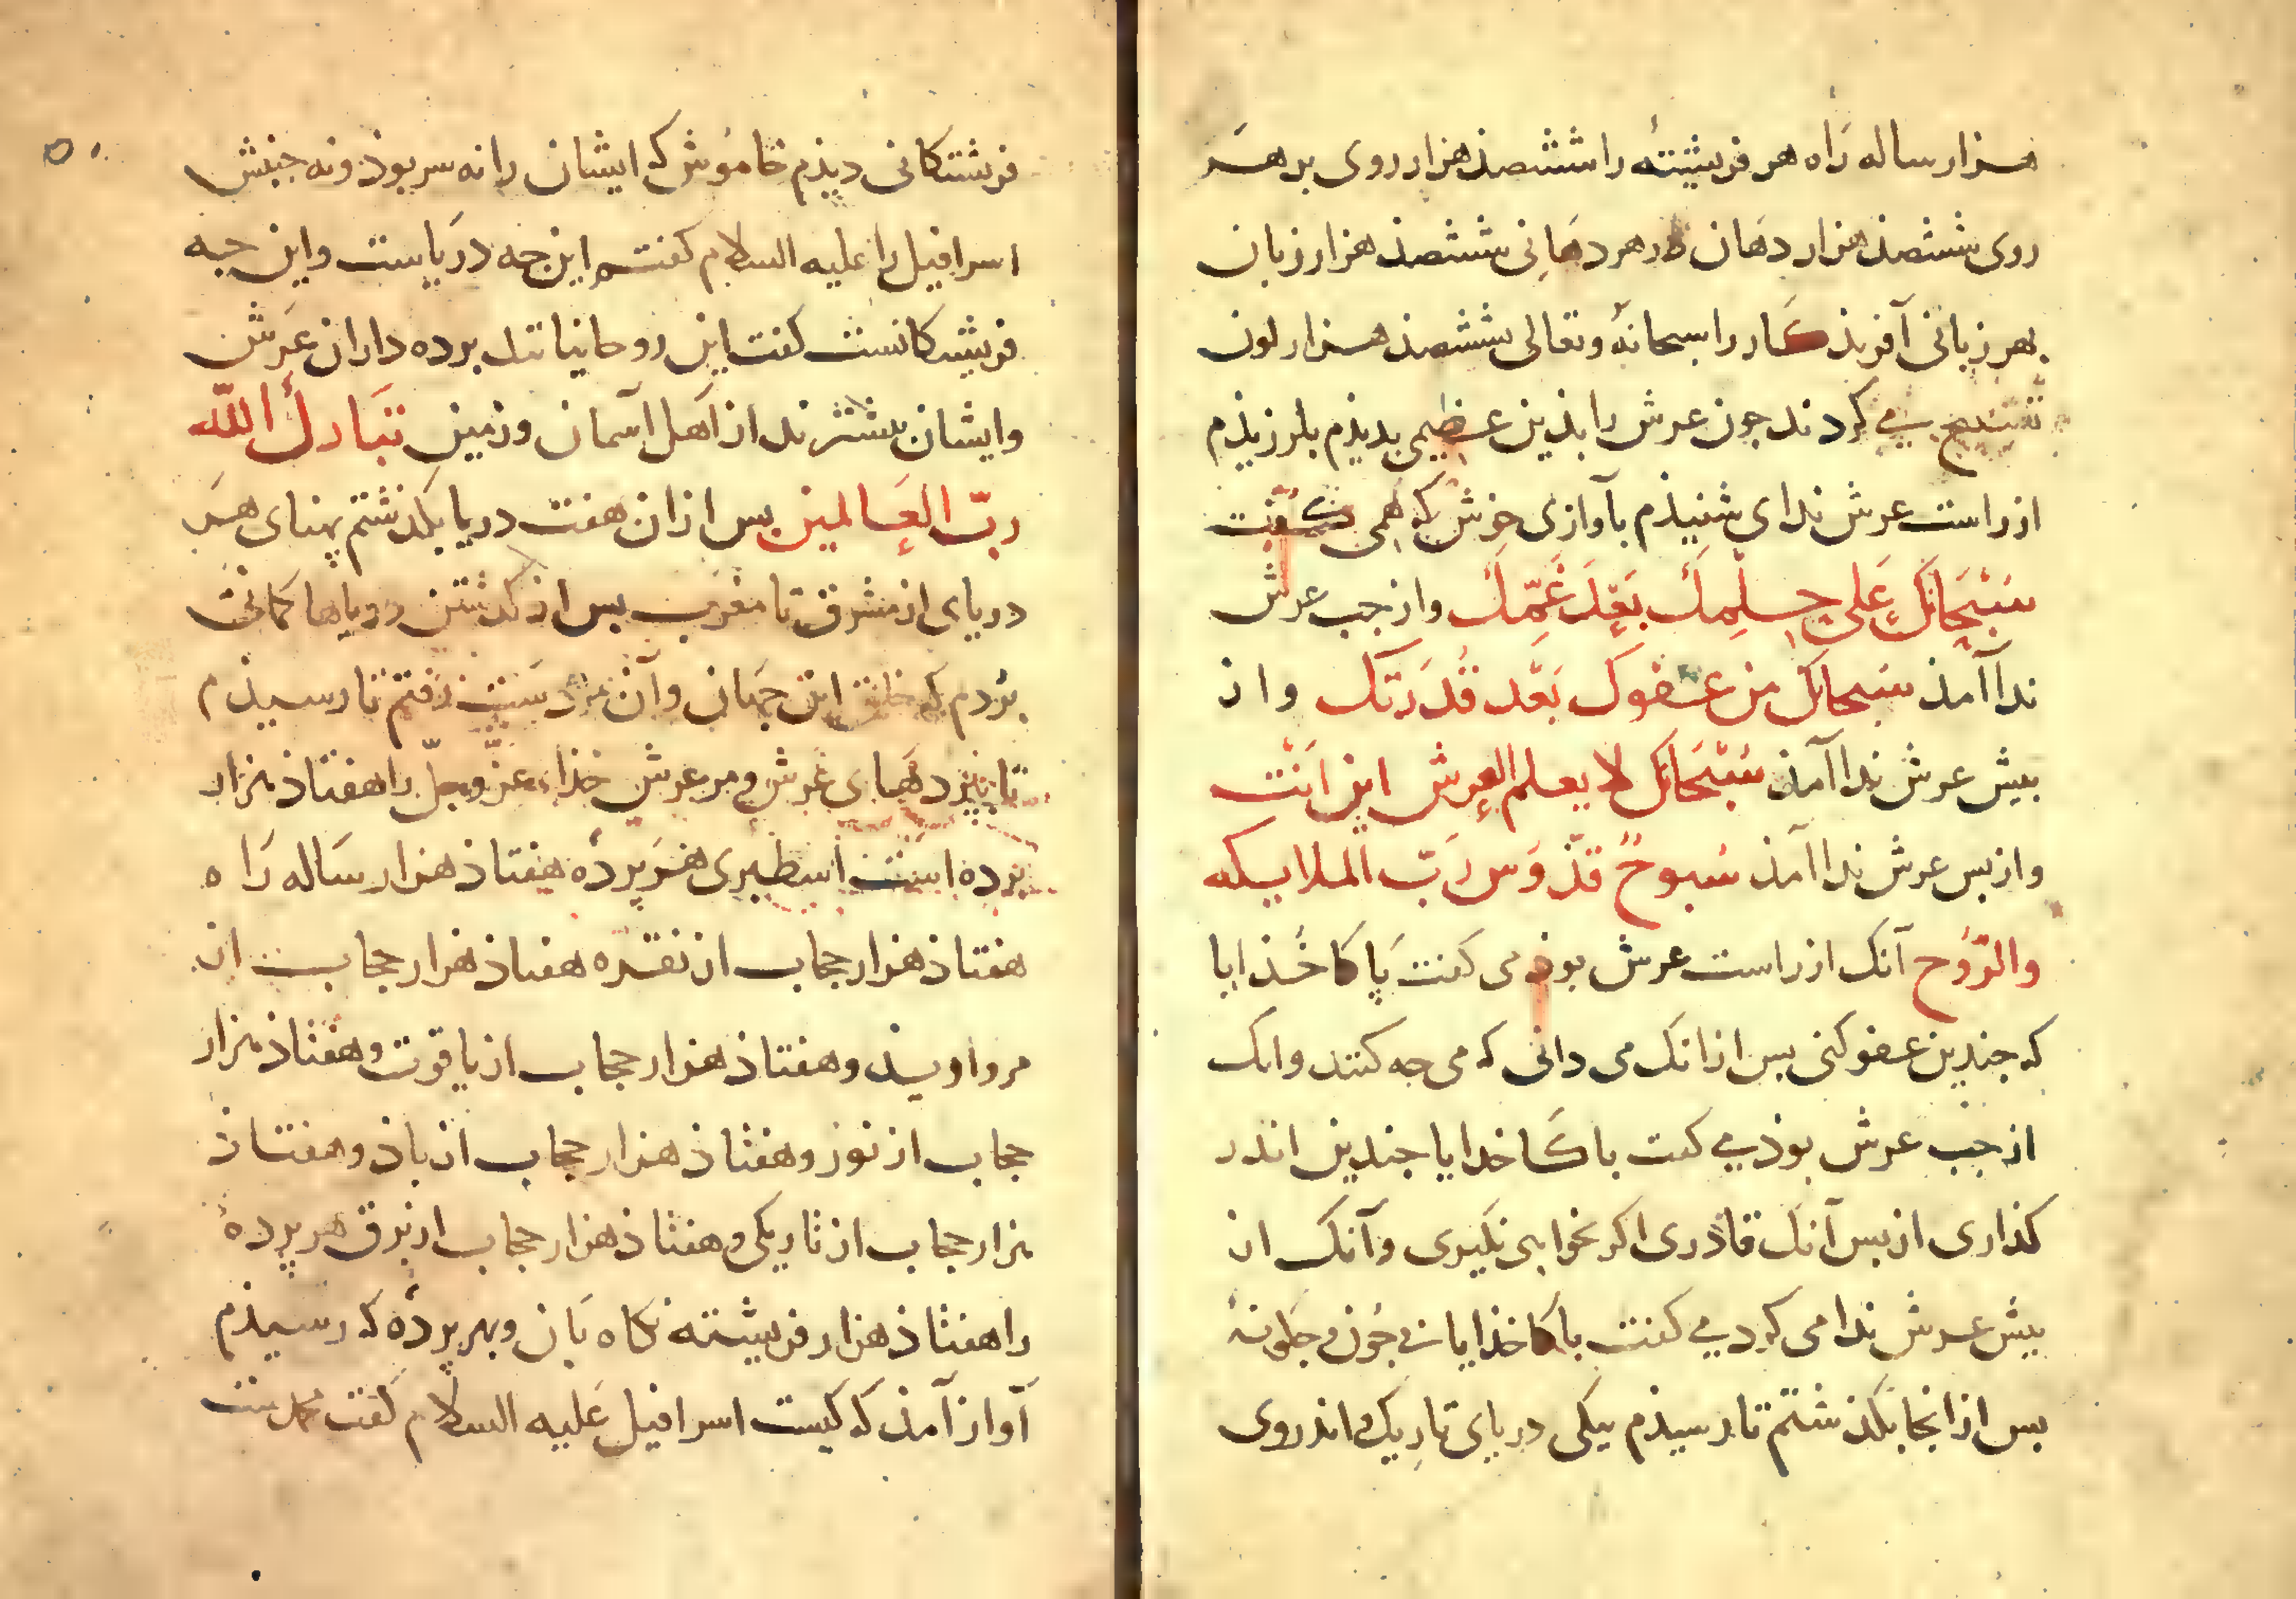 هزار ساله رَاه هر فریشتهٔ را ششصذ هزار روی بر هَر
روی ششصذ هزار دهَان در هر دهَانِی ششصذ هزار زبان
بهر زبانی آفریذکار را سبحانهٔ وتعالی ششصذ هزار لون
تسبیح می کردند جون عرش را بذین عظیمی بدیذم بلرزیذم
از راست عرش ندای شنیذم بآوازی خوش که همی کفت
سُبْحَانَكَ عَلی حِلْمِكَ بَعْدَ عِلْمِكَ واز جب عرش
ندا آمذ سُبحانك من عفوك بَعْد قُدرَتك واز
بیش عرش ندا آمذ سُبْحَانَك لا یعلم العرش این اَنْت
واز بس عرش ندا آمذ سُبوحٌ قدّوس رَبّ الملایکه
والرّوُح آنک از راست عرش بوذ می کفت پَاکا خُذایا
که جندین عفو کنی بس از انک می دانی که می جه کنند وانک
از جب عرش بوذ می کفت باکَا خدایا جندین اندر
کذاری از بس آنک قاذری اکر بخواهی بکیری وآنک از
بیش عرش ندا می کرد می کفت باکا خذایا نی جُون و جکونهٔ
بس از انجا بکذشتم تا رسیذم بیکی دریای تارِیک و اندروی
فرشتکانی دیذم خامُوش که ایشان را نه سر بوذ ونه جنبش
اسرافیل را علیه السلام کفتم این جه دریاست واین جه
فریشتکانست کفت این روحانیانند برده داران عَرش
وایشان بیشترند از اَهل آسمان وزمین تبَارك اللّه
ربّ العَالمین بس ازان هفت دریا بکذشتم پهنای هَر
دریای از مشرق تا مغرَب بس از کذشتن دریاها کمانی
بُردم که خلق این جهَان وآن رفتم تا رسیذم
تا بپردهَای عَرش و مر عرش خذای عزّ وجلّ را هفتاذ هزار
برده است اسطبری هَر پردهٔ هفتاذ هزار سَاله رَاه
هفتاذ هزار حجاب از نقره هفتاذ هزار حجاب از
مروارید وهفتاذ هزار حجاب از یاقوت وهفتاذ هزار
حجاب از نور وهفتاذ هزار حجاب از باذ وهفتاذ
هزار حجاب از تاریکی وهفتاذ هزار حجاب از برق هر پردهٔ
را هفتاذ هزار فریشته نکاه بَان وبهر پردهٔ که رسیذم
آواز آمذ که کیست اسرافیل عَلیه السلام کفت محمدست